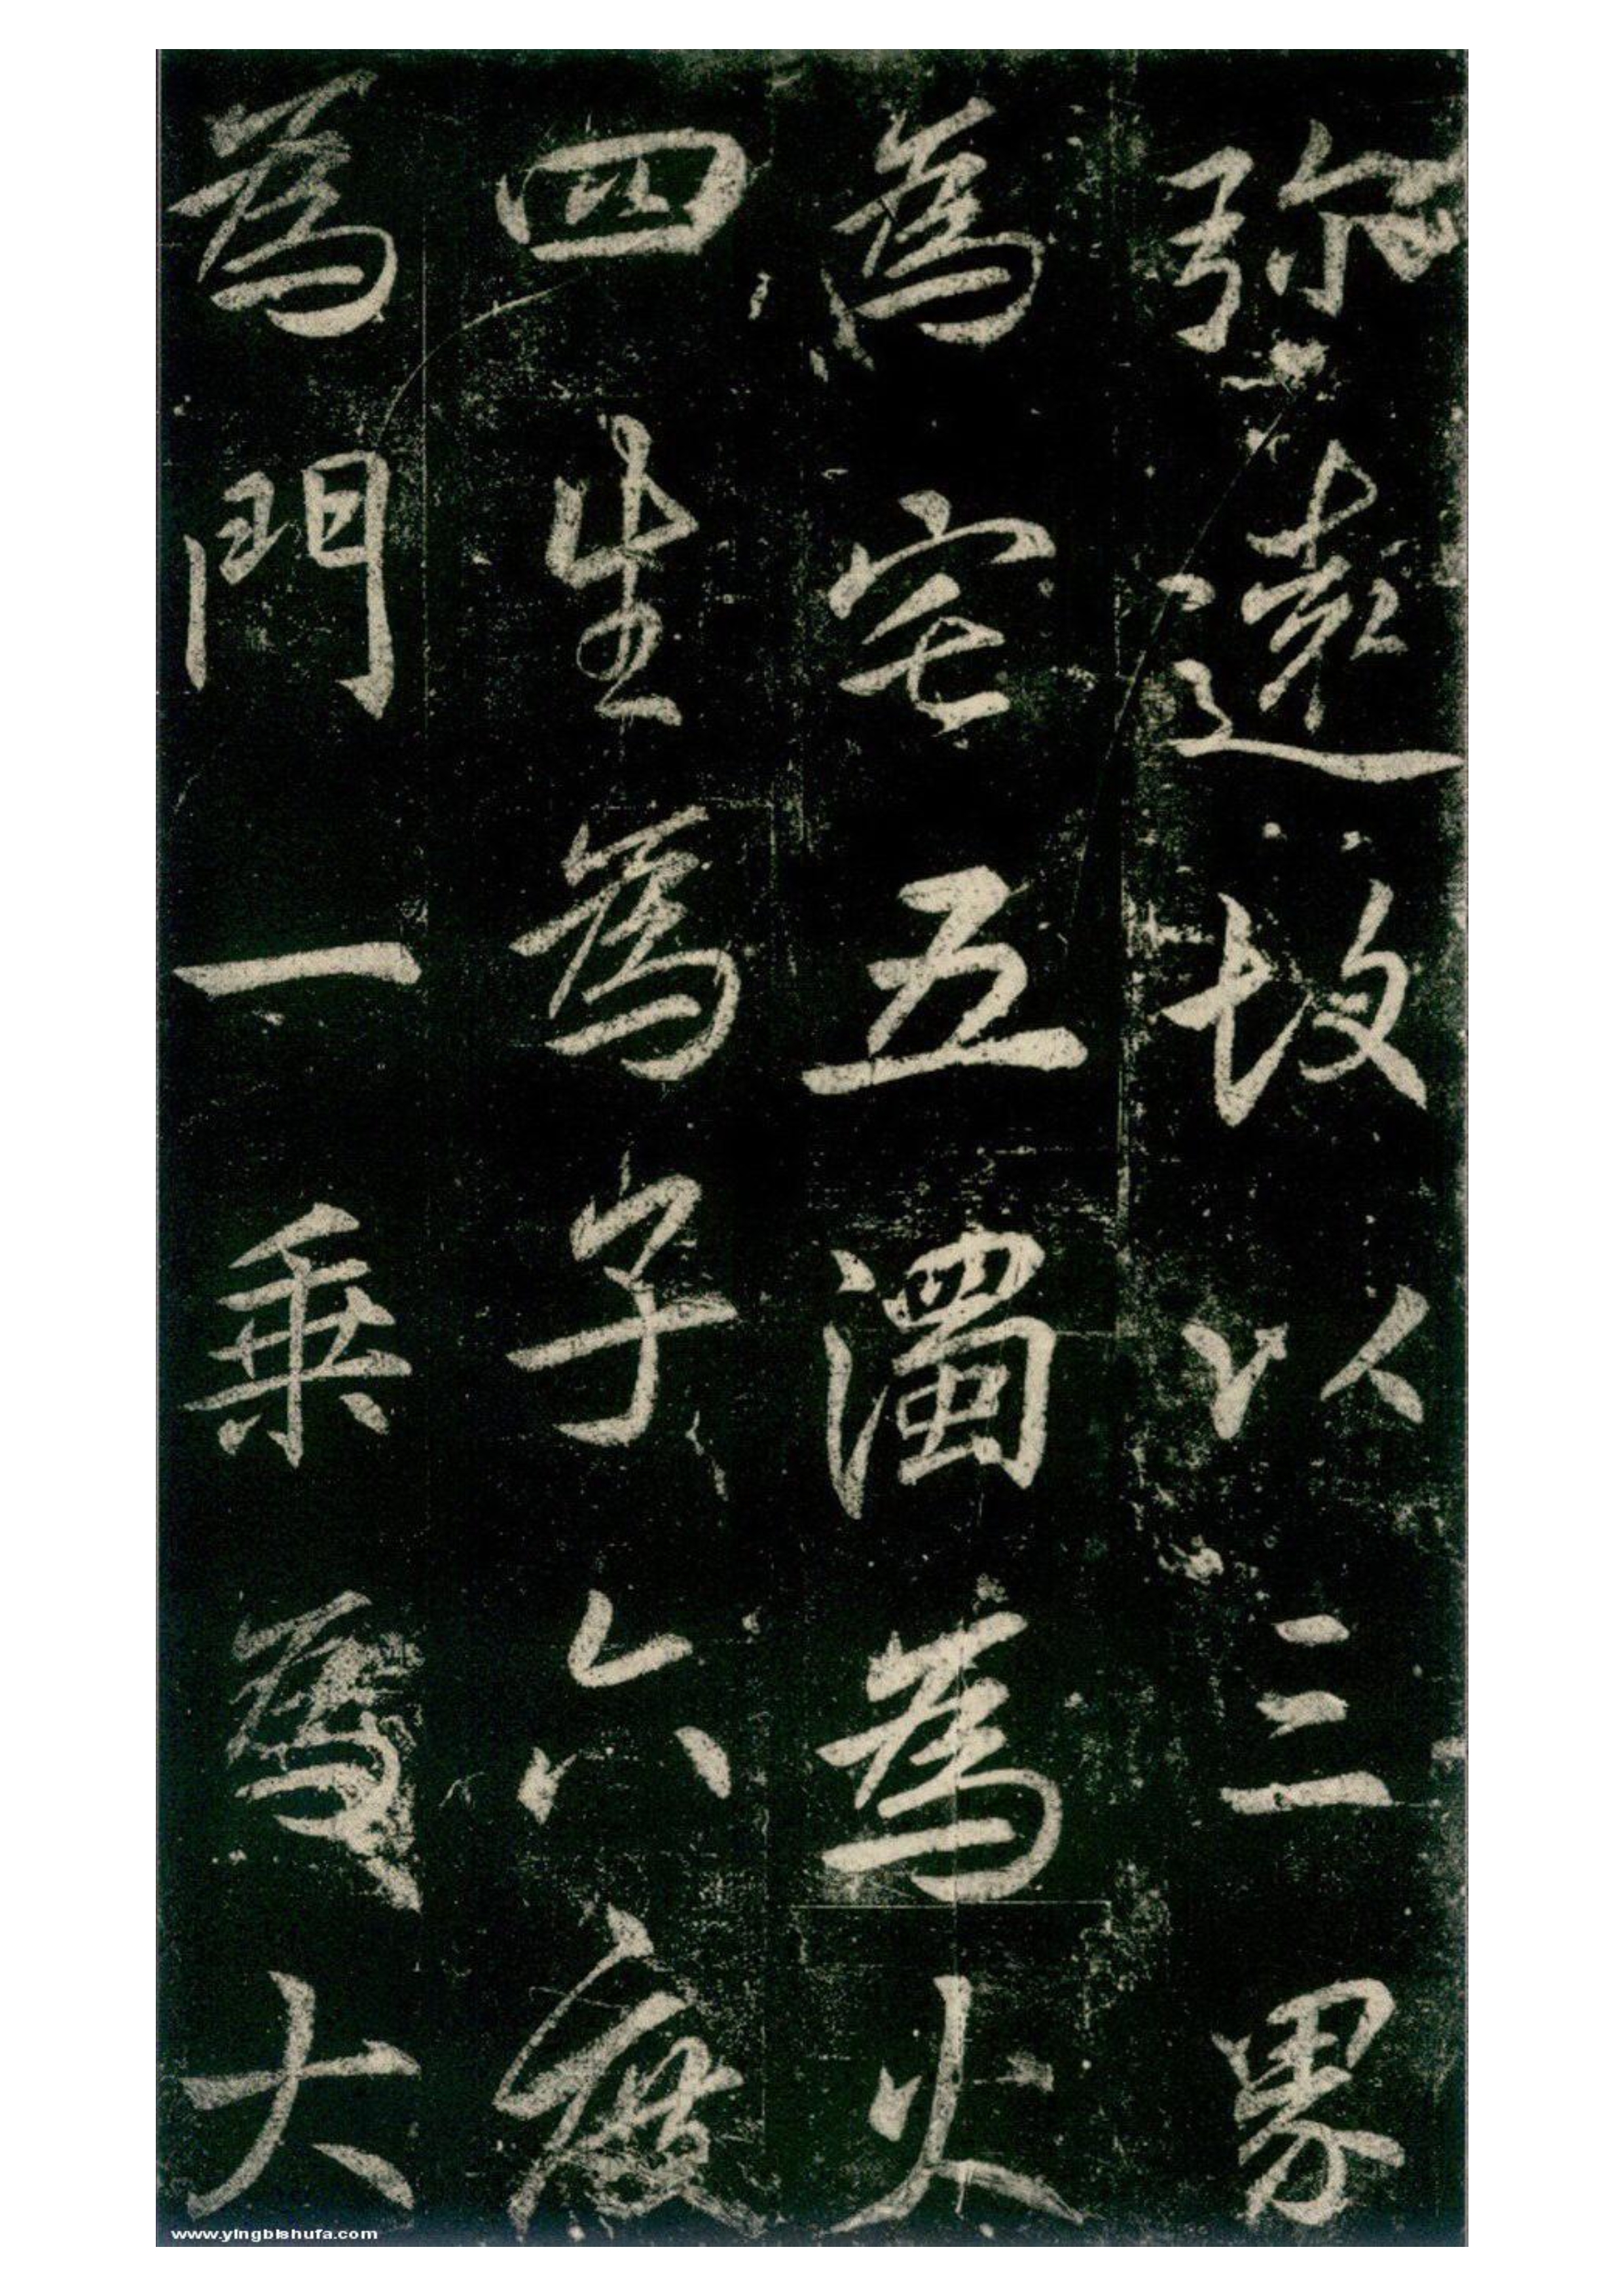 弥遠故以三界
為宅五濁為火
四生為子六度
為門一乗為大
www.yingbishufa.com